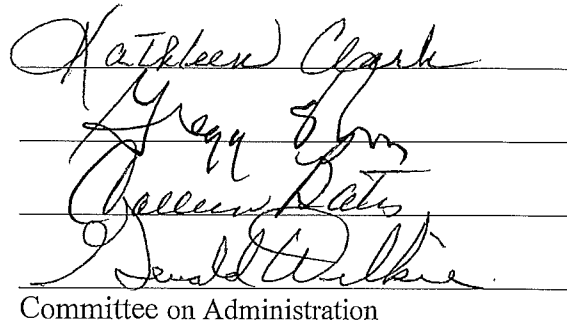 Kathleen Clark
Gregg
Colleen Bates
Gerald Wilkie
Committee on Administration